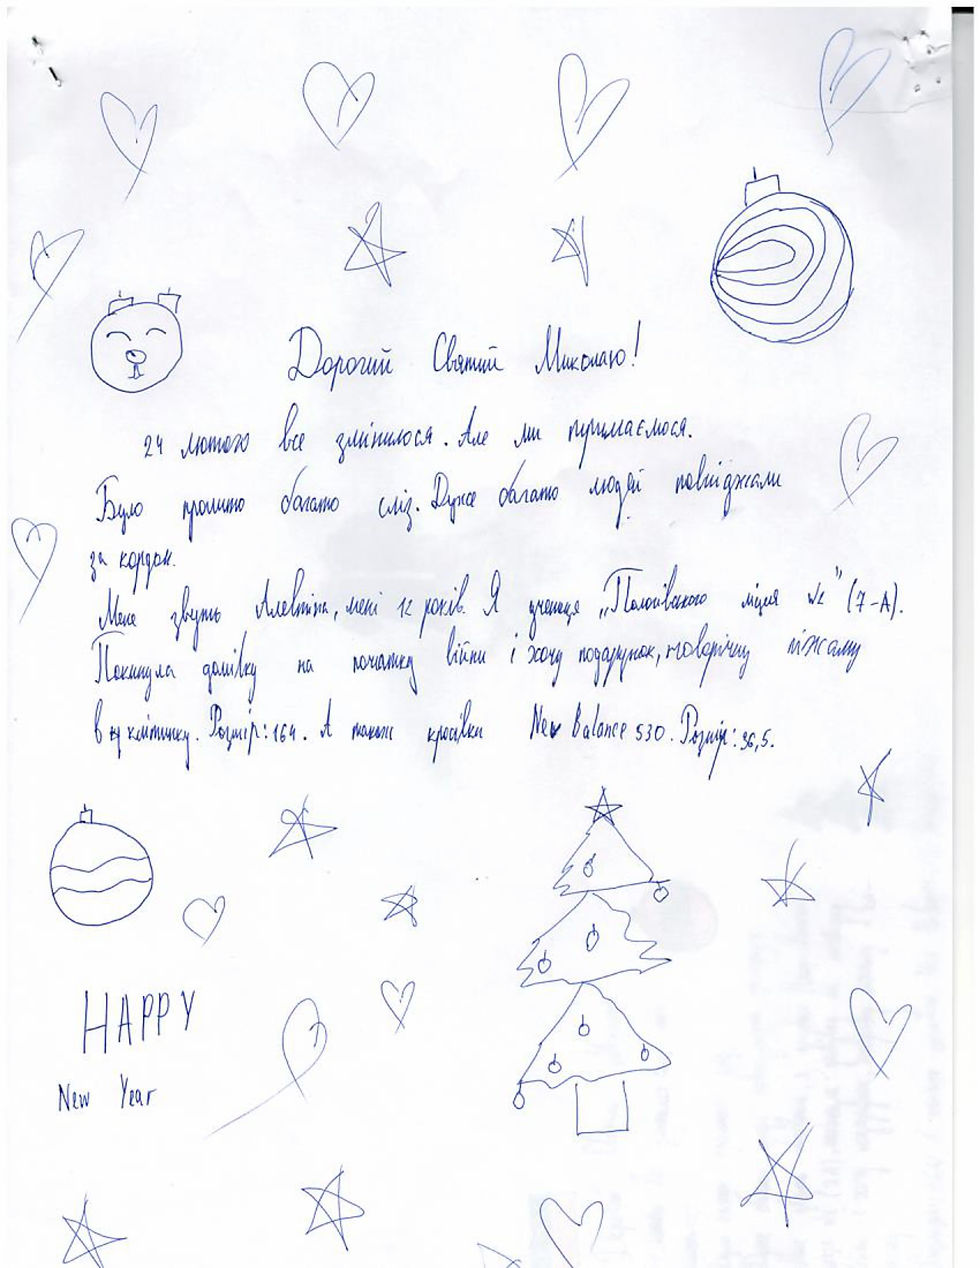 Дорогий Святий Миколаю!
24 лютого все змінилося. Але ми тримаємося.
Було пролито багато сліз. Дуже багато людей повиїджали
за кордон.
Мене звуть Алевтіна, мені 12 років. Я учениця „Пологівського ліцея №2" (7-А).
Покинула домівку на початку війни і хочу подарунок, новорічну піжаму
в клітинку. Розмір: 164. А також кросівки New Balance 530. Розмір: 36,5.
HAPPY
New Year